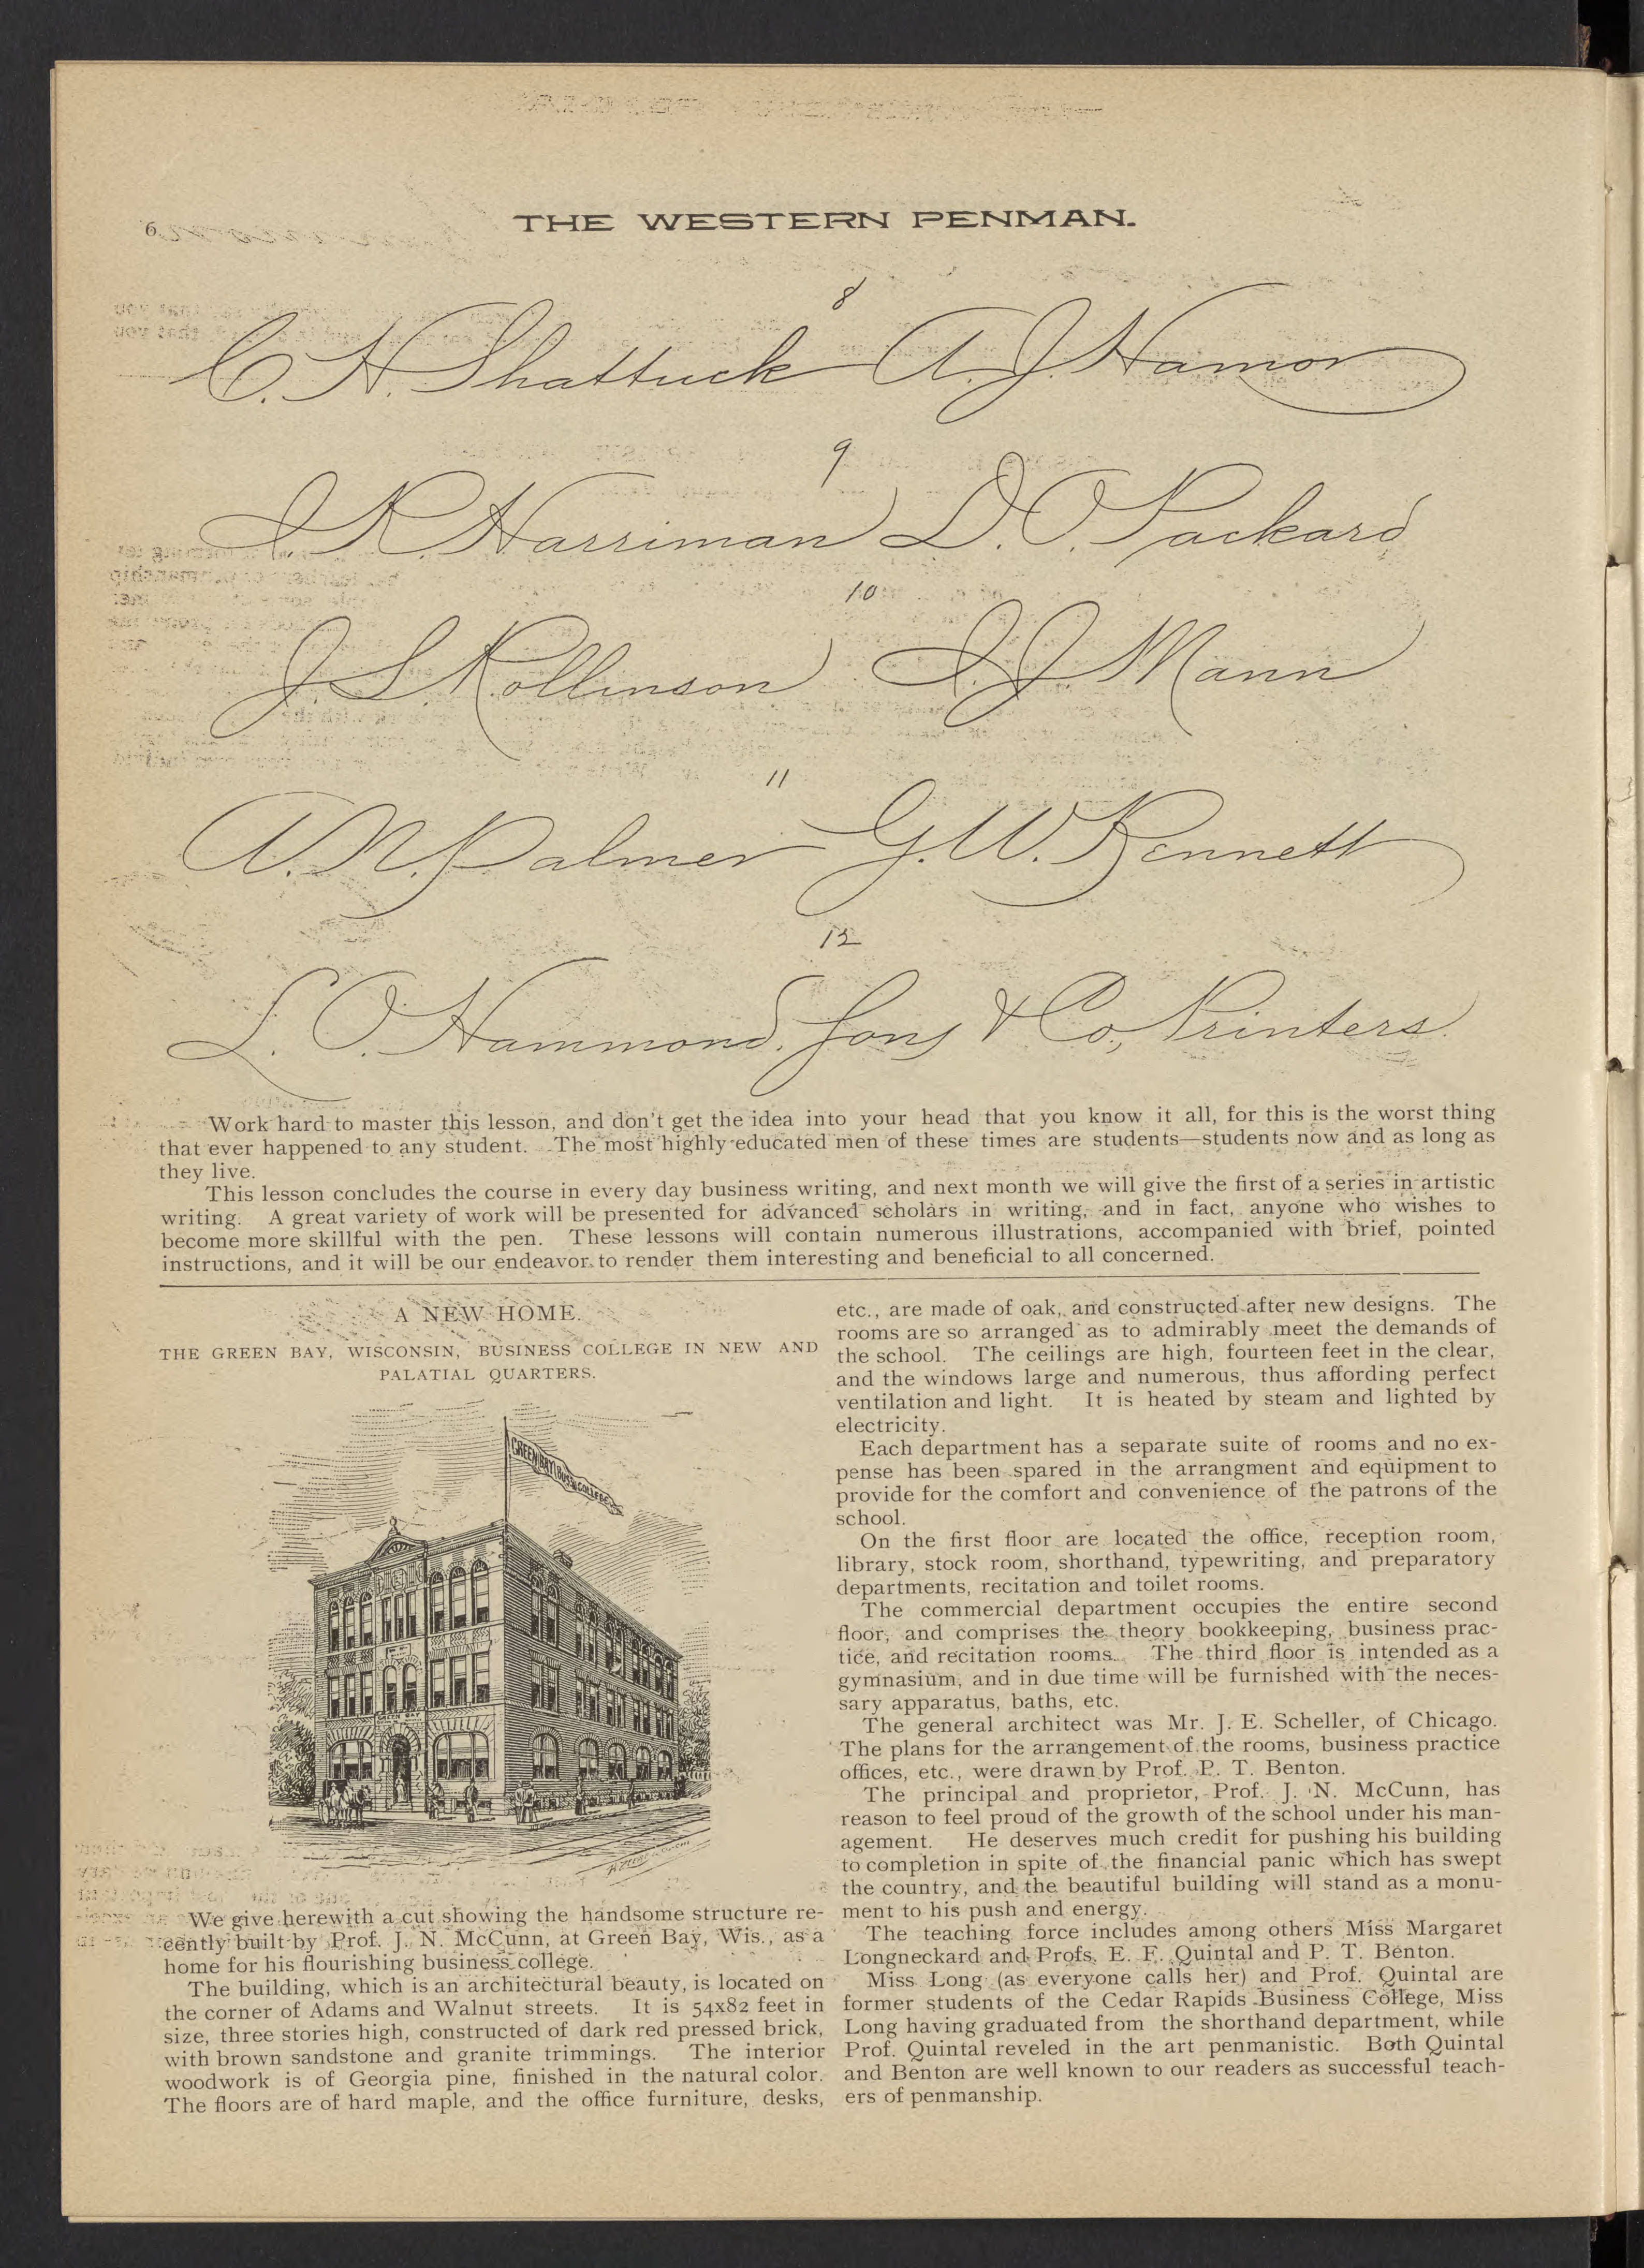 6
THE WESTERN PENMAN.
8
C. H. Shattuck A. J. Hamor
9
J. R. Harriman D. O. Packard
10
J. S. Rollinson I. J. Mann
11
A. N. Palmer G. W. Bennett
12
L. O. Hammond, Sons & Co., Printers.
Work hard to master this lesson, and don't get the idea into your head that you know it all, for this is the worst thing
that ever happened to any student. The most highly educated men of these times are students—students now and as long as
they live.
This lesson concludes the course in every day business writing, and next month we will give the first of a series in artistic
writing. A great variety of work will be presented for advanced scholars in writing, and in fact, anyone who wishes to
become more skillful with the pen. These lessons will contain numerous illustrations, accompanied with brief, pointed
instructions, and it will be our endeavor to render them interesting and beneficial to all concerned.
A NEW HOME.
THE GREEN BAY, WISCONSIN, BUSINESS COLLEGE IN NEW AND
PALATIAL QUARTERS.
GREEN BAY BUS. COLLEGE
We give herewith a cut showing the handsome structure re-
cently built by Prof. J. N. McCunn, at Green Bay, Wis., as a
home for his flourishing business college.
The building, which is an architectural beauty, is located on
the corner of Adams and Walnut streets. It is 54x82 feet in
size, three stories high, constructed of dark red pressed brick,
with brown sandstone and granite trimmings. The interior
woodwork is of Georgia pine, finished in the natural color.
The floors are of hard maple, and the office furniture, desks,
etc., are made of oak, and constructed after new designs. The
rooms are so arranged as to admirably meet the demands of
the school. The ceilings are high, fourteen feet in the clear,
and the windows large and numerous, thus affording perfect
ventilation and light. It is heated by steam and lighted by
electricity.
Each department has a separate suite of rooms and no ex-
pense has been spared in the arrangment and equipment to
provide for the comfort and convenience of the patrons of the
school.
On the first floor are located the office, reception room,
library, stock room, shorthand, typewriting, and preparatory
departments, recitation and toilet rooms.
The commercial department occupies the entire second
floor, and comprises the theory bookkeeping, business prac-
tice, and recitation rooms. The third floor is intended as a
gymnasium, and in due time will be furnished with the neces-
sary apparatus, baths, etc.
The general architect was Mr. J. E. Scheller, of Chicago.
The plans for the arrangement of the rooms, business practice
offices, etc., were drawn by Prof. P. T. Benton.
The principal and proprietor, Prof. J. N. McCunn, has
reason to feel proud of the growth of the school under his man-
agement. He deserves much credit for pushing his building
to completion in spite of the financial panic which has swept
the country, and the beautiful building will stand as a monu-
ment to his push and energy.
The teaching force includes among others Miss Margaret
Longneckard and Profs. E. F. Quintal and P. T. Benton.
Miss Long (as everyone calls her) and Prof. Quintal are
former students of the Cedar Rapids Business College, Miss
Long having graduated from the shorthand department, while
Prof. Quintal reveled in the art penmanistic. Both Quintal
and Benton are well known to our readers as successful teach-
ers of penmanship.